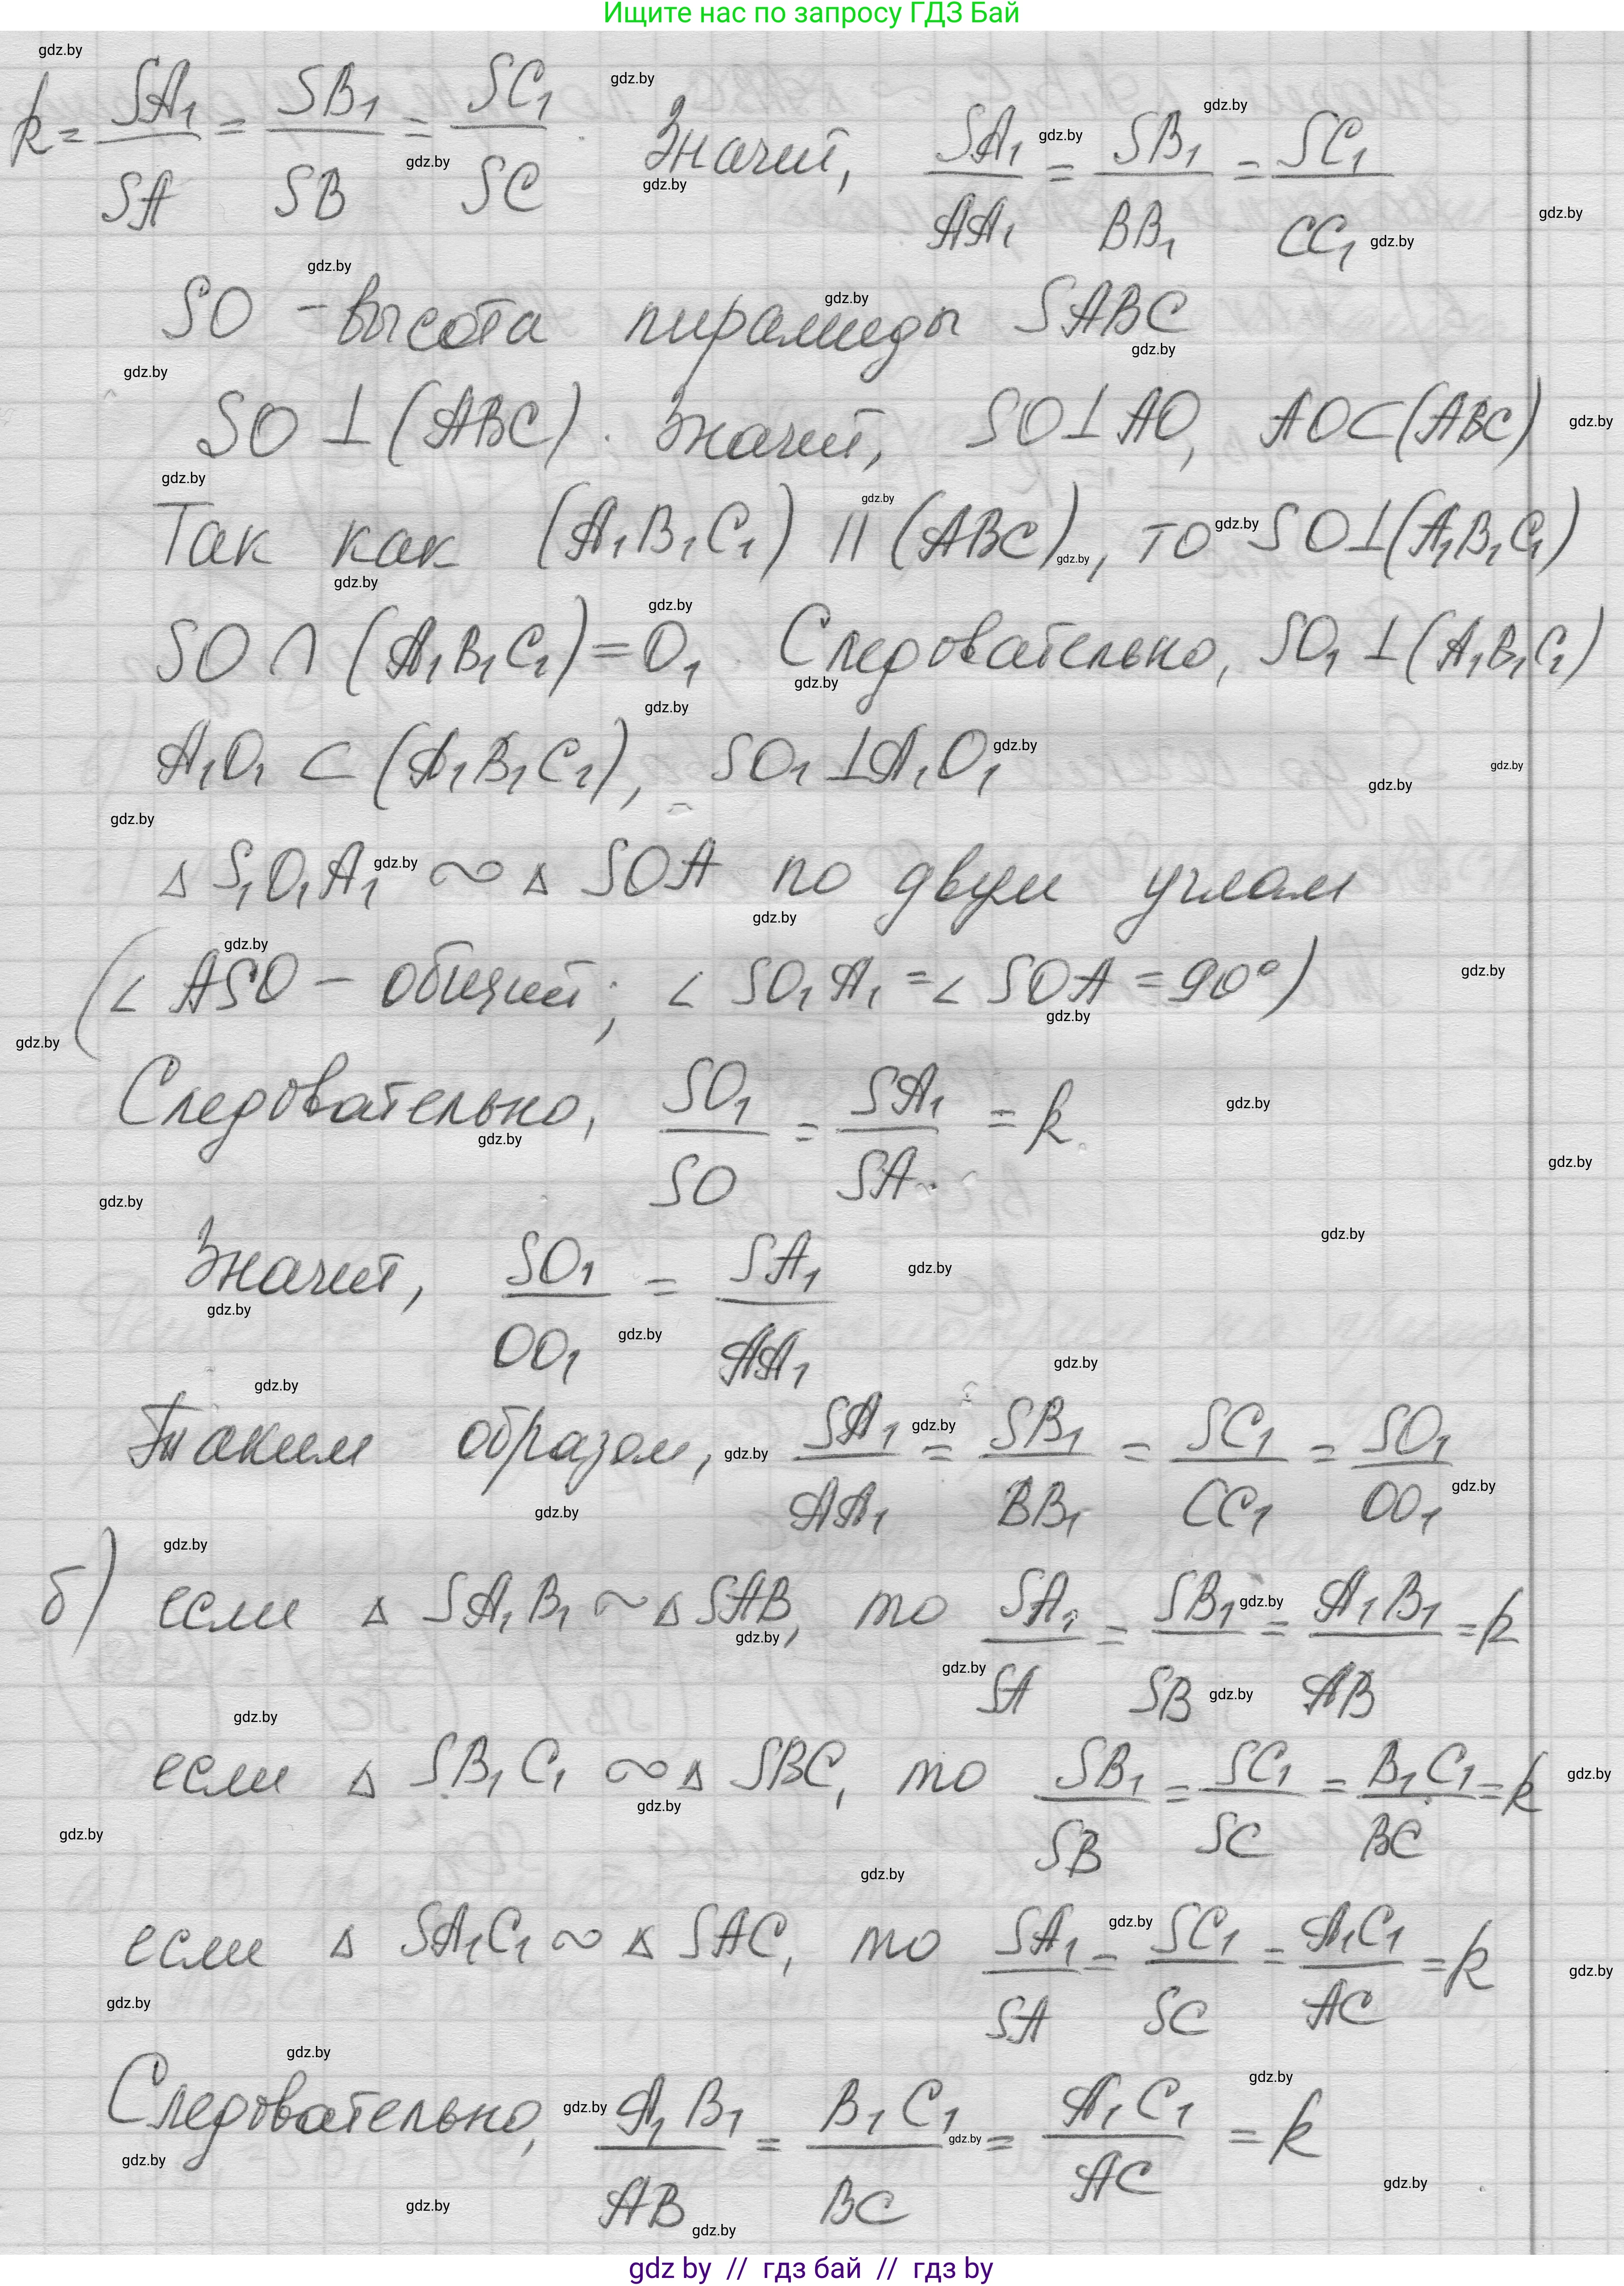 Ищите нас по запросу ГДЗ Бай
k = SA₁/SA = SB₁/SB = SC₁/SC. Значит, SA₁/AA₁ = SB₁/BB₁ = SC₁/CC₁
SO - высота пирамиды SABC
SO ⊥ (ABC). Значит, SO ⊥ AO, AO ⊂ (ABC)
Так как (A₁B₁C₁) || (ABC), то SO ⊥ (A₁B₁C₁)
SO ∩ (A₁B₁C₁) = O₁. Следовательно, SO₁ ⊥ (A₁B₁C₁)
A₁O₁ ⊂ (A₁B₁C₁), SO₁ ⊥ A₁O₁
△ S₁O₁A₁ ∾ △ SOA по двум углам
(∠ ASO - общий; ∠ SO₁A₁ = ∠ SOA = 90°)
Следовательно, SO₁/SO = SA₁/SA = k.
Значит, SO₁/OO₁ = SA₁/AA₁
Таким образом, SA₁/AA₁ = SB₁/BB₁ = SC₁/CC₁ = SO₁/OO₁
б) если △ SA₁B₁ ∾ △ SAB, то SA₁/SA = SB₁/SB = A₁B₁/AB = k
если △ SB₁C₁ ∾ △ SBC, то SB₁/SB = SC₁/SC = B₁C₁/BC = k
если △ SA₁C₁ ∾ △ SAC, то SA₁/SA = SC₁/SC = A₁C₁/AC = k
Следовательно, A₁B₁/AB = B₁C₁/BC = A₁C₁/AC = k
gdz by // гдз бай // гдз by